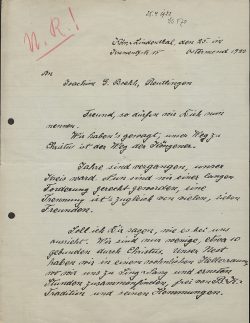 N. R.!
25.4.1922
Köln-Lindenthal, den 25. im
Ostermond 1922
An
Joachim G. Boeckh, Reutlingen
Freund, so dürfen wir Euch nun
nennen.
Wir haben's gewagt, unser Weg zu
Christus ist der Weg der Köngener.
Jahre sind vergangen, unser
Kreis ward nun erst einer langen
Forderung gerecht geworden, eine
Trennung ist's zugleich von vielen, lieben
Freunden.
Soll ich Dir sagen, wie es bei uns
aussieht. Wir sind nur wenige, etwa 10
gebunden durch Christus, unser Nest
haben wir in einem nächtlichen Kellerraum,
wo wir uns zu Sing-Sang und ernsten
Stunden zusammenfinden, frei von B.K.
Tradition und seinen Hemmungen.